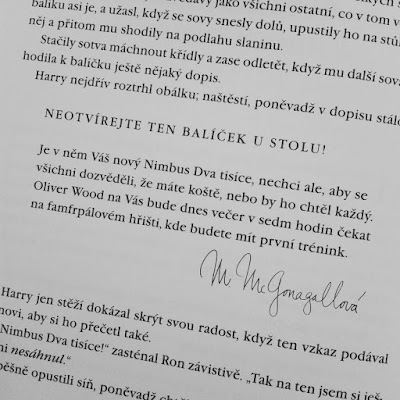 balíku asi je, a užasl, když se sovy snesly dolů, upustily ho na stůl
něj a přitom mu shodily na podlahu slaninu.
Stačily sotva máchnout křídly a zase odletět, když mu další sova
hodila k balíčku ještě nějaký dopis.
Harry nejdřív roztrhl obálku; naštěstí, poněvadž v dopisu stálo
NEOTVÍREJTE TEN BALÍČEK U STOLU!
Je v něm Váš nový Nimbus Dva tisíce, nechci ale, aby se
všichni dozvěděli, že máte koště, nebo by ho chtěl každý.
Oliver Wood na Vás bude dnes večer v sedm hodin čekat
na famfrpálovém hřišti, kde budete mít první trénink.
M. McGonagallová
Harry jen stěží dokázal skrýt svou radost, když ten vzkaz podával
novi, aby si ho přečetl také.
Nimbus Dva tisíce!“ zasténal Ron závistivě. „Tak na ten jsem si ješ-
ni nesáhnul.“
pěšně opustili síň, poněvadž